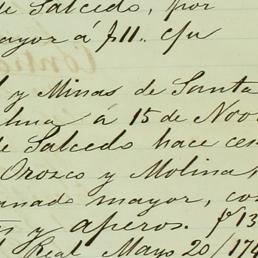 de Salcedo, por
mayor á f 11.. c/u
y Minas de Santa
á 15 de Nov
de Salcedo hace ces
Orozco y Molina,
ganado mayor, co
y aperos. f 13
Real Mayo 20/174